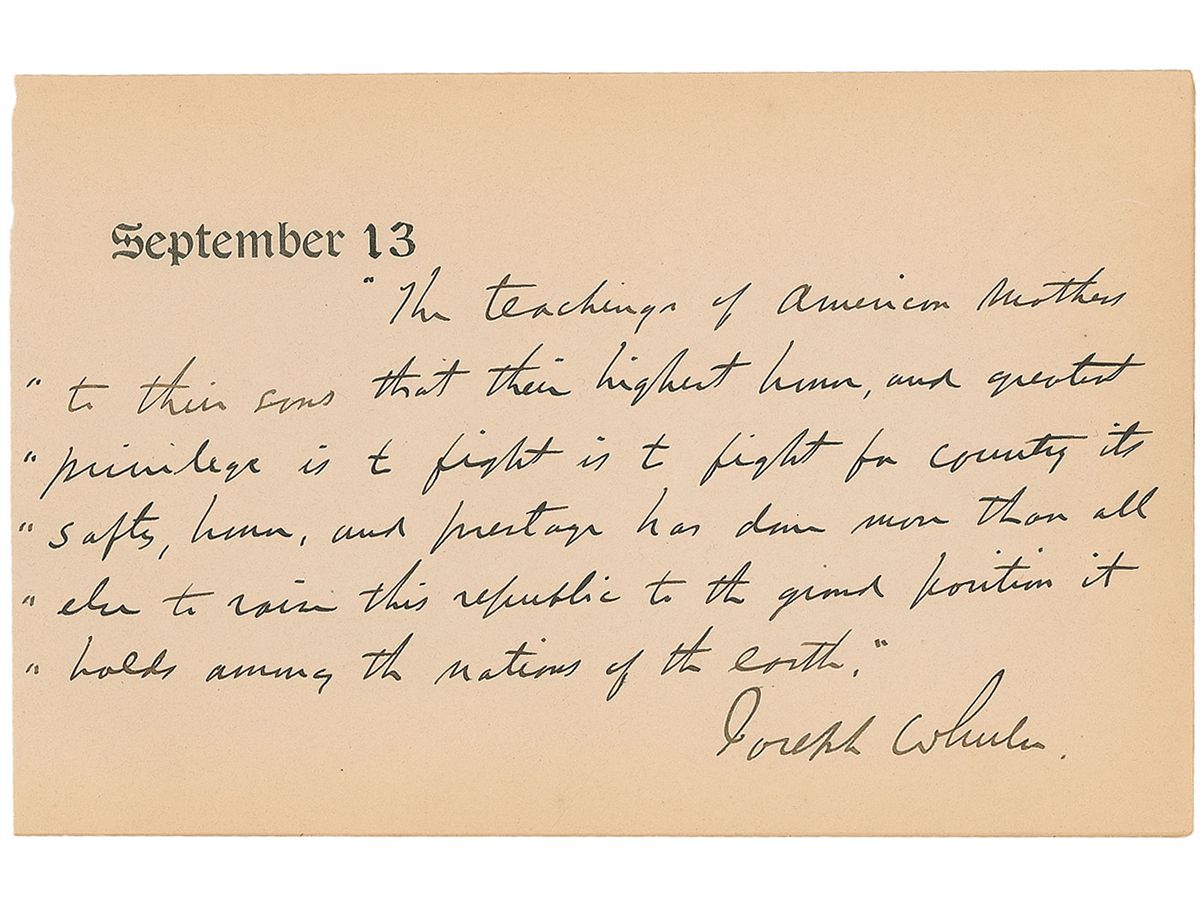 September 13
"The teachings of American Mothers
" to their sons that their highest honor, and greatest
" privilege is to fight is to fight for country its
" safty, honor, and prestage has done more than all
" else to raise this republic to the grand position it
" holds among the nations of the earth."
Joseph Wheeler.